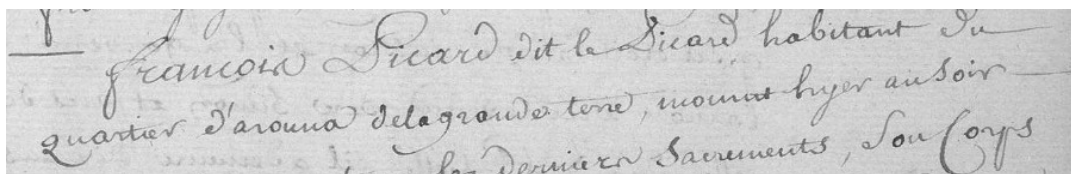 françois Picard dit le Picard habitant du
quartier d'arouna dela grande terre, mourut hyer au soir
les derniers Sacrements, Son Corps